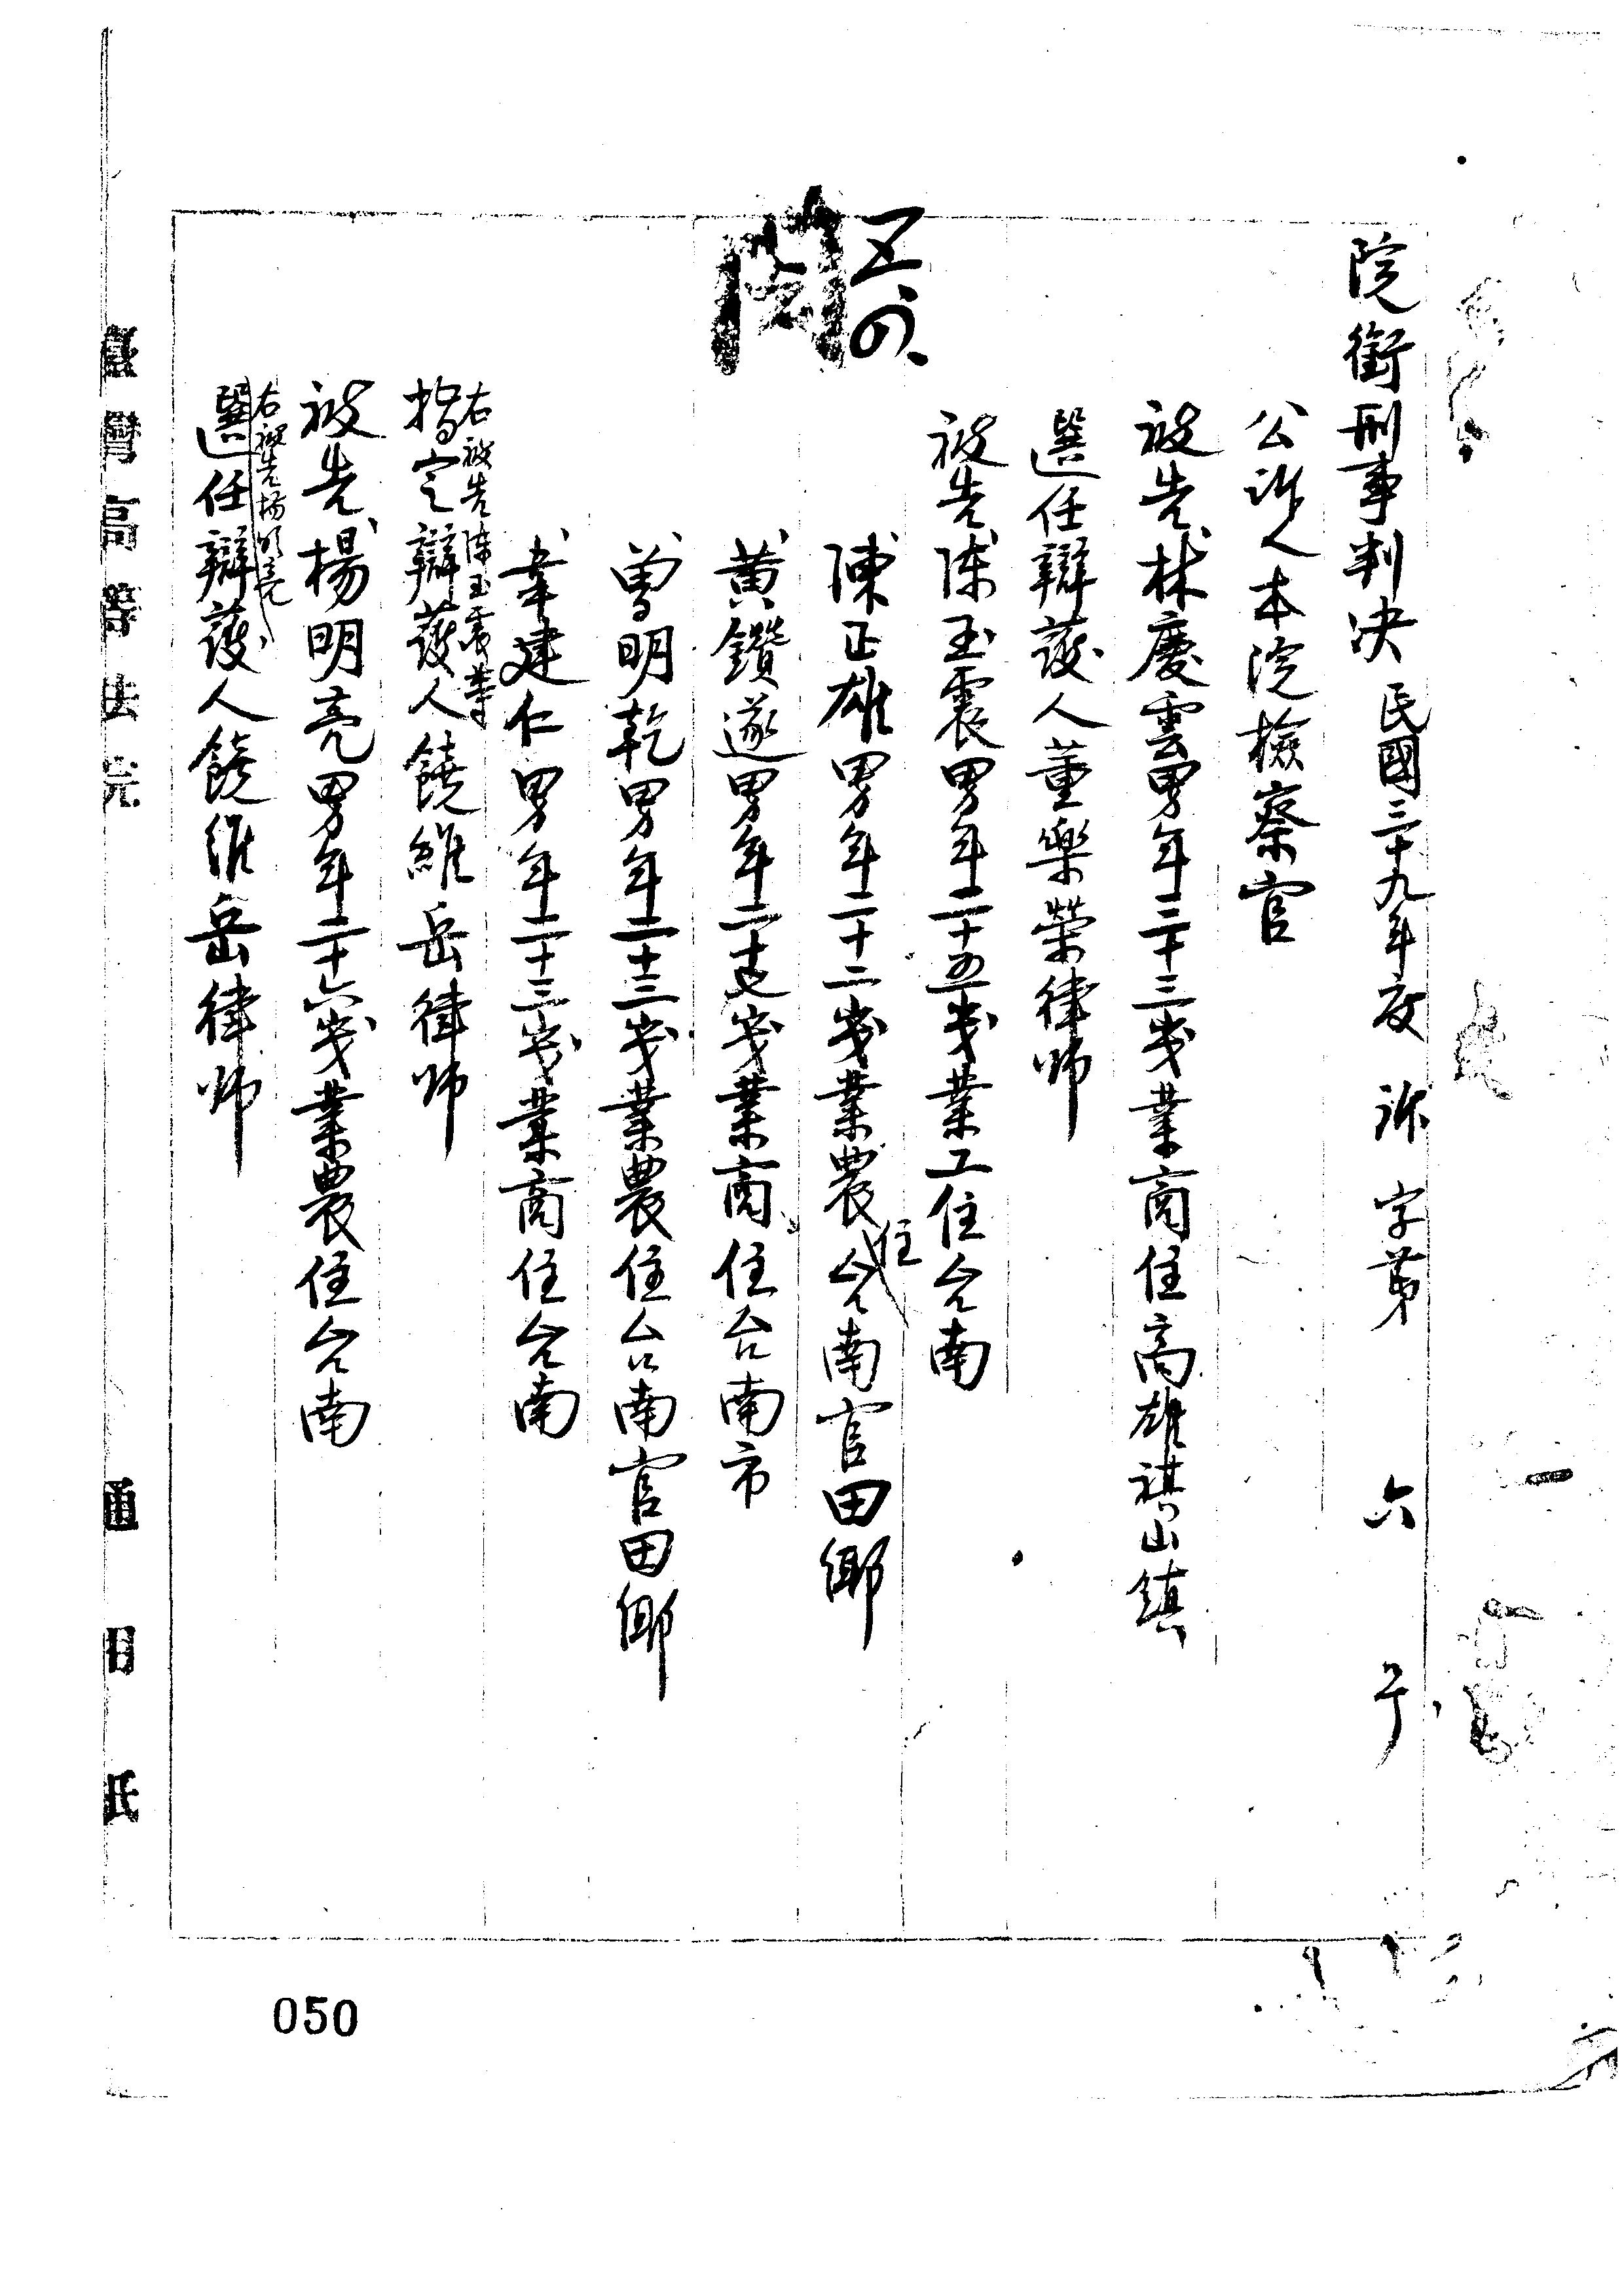 院銜刑事判决 民國三十九年度 訴 字第 六 号
公訴人本院檢察官
被告林慶雲男年三十三歲業商住高雄祺山鎮
選任辯護人董樂榮律师
被告陈玉震男年二十五歲業工住台南
陳正雄男年二十二歲業農住台南官田鄉
黄鑽遂男年二十七歲業商住台南市
曾明乾男年二十三歲業農住台南官田鄉
韋建仁男年二十三歲業商住台南
右被告陈玉震等
指定辯護人饒維岳律师
被告楊明亮男年二十六歲業農住台南
右被告楊明亮
選任辯護人饒維岳律师
臺灣高等法院
通用民
050